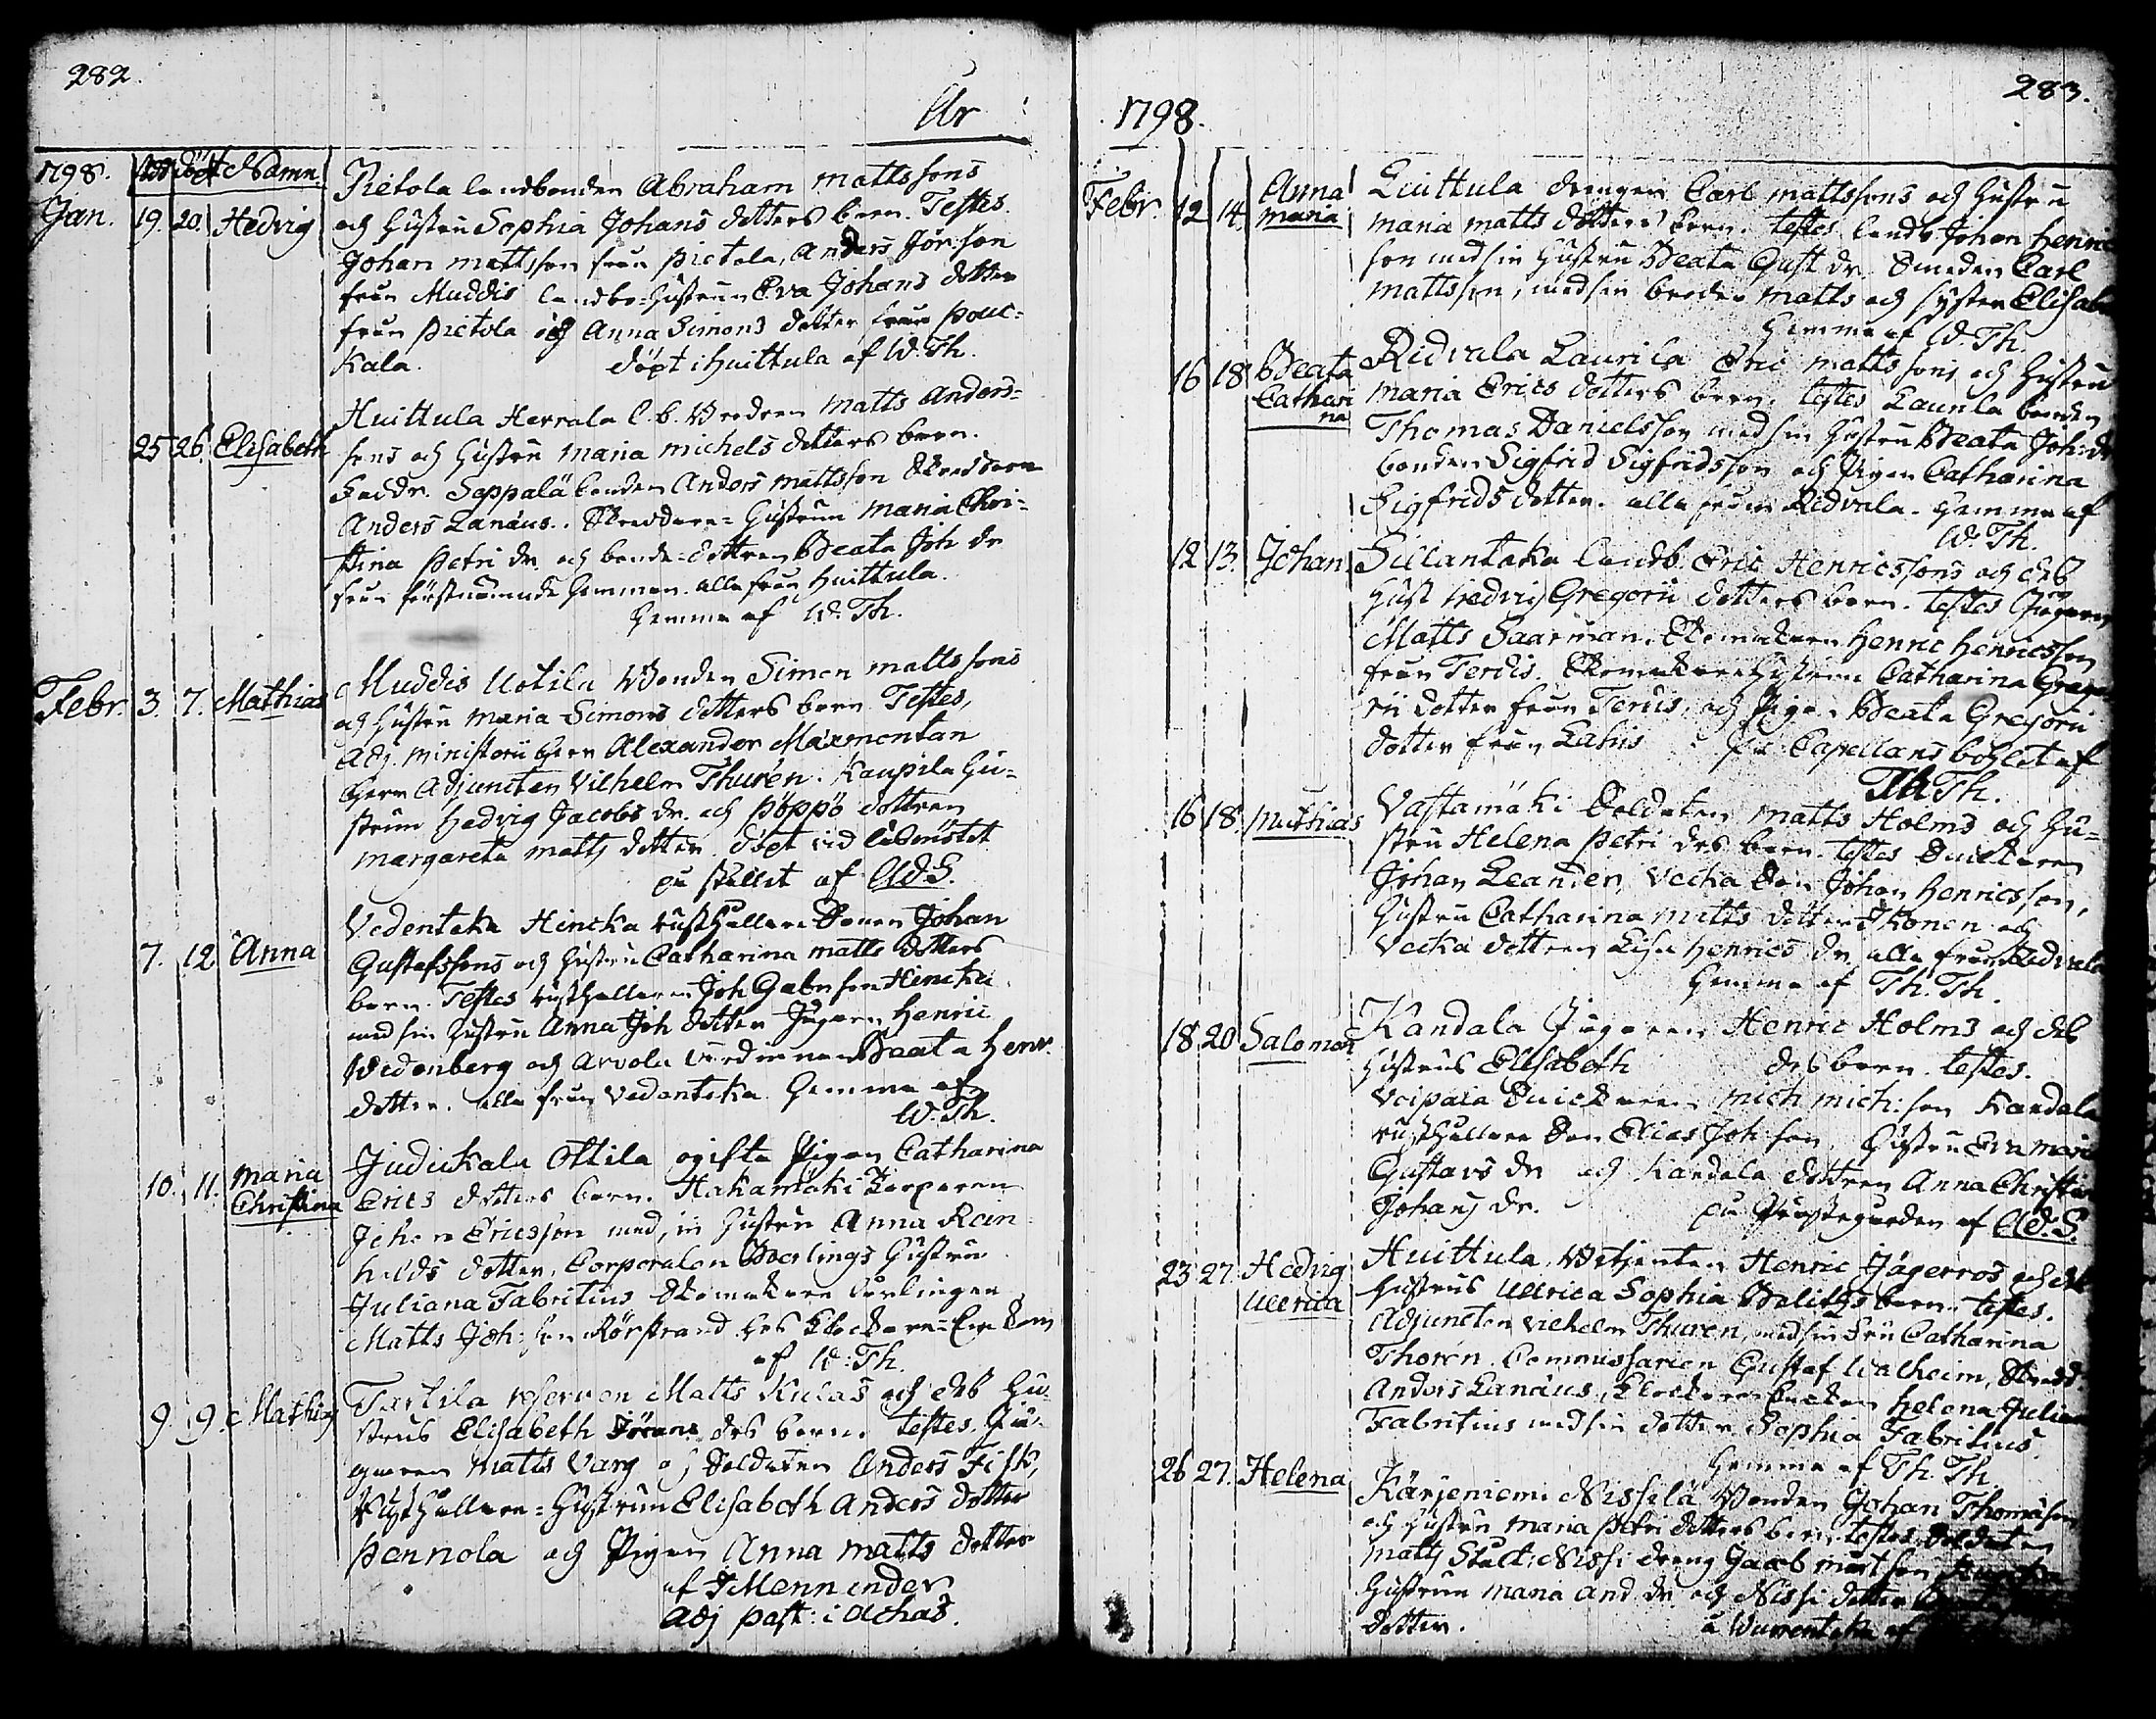 282.
År
1798. född döpt Namn.
Jan. 19. 20. Hedvig
Pietola landbonden Abraham Mattssons
och Hustru Sophia Johans dotters barn. Testes.
Johan Mattsson från Pietola, Anders Jör:son
från Muddis landbo-Hustrun Eva Johans dotter
från Pietola och Anna Simons dotter från Pouc-
kala. döpt i Huittula af W. Th.
25 26. Elisabeth
Huittula Herrala l.b. Brodren Matts Anders-
sons och Hustru Maria Michels dotters barn.
Faddr. Seppälä bonden Anders Mattsson Skreddaren
Anders Lanæus. Skreddare-Hustrun Maria Chri-
stina Petri dr och bonde-dottren Beata Joh dr
från förstnämnde Hemman. alla från Huittula.
Hemma af W. Th.
Febr. 3. 7. Mathias
Muddis Uotila Bonden Simon Mattssons
och Hustru Maria Simons dotters barn Testes,
Adj. Ministerii Herr Alexander Maxmontan
Herr Adjuncten Vilhelm Thurén. Kaupila Hu-
strun Hedvig Jacobs dr. och Pöppö dottren
Margareta Matts dotter. döpt vid
på stället af Ad. S.
7. 12 Anna
Vedentaka Hincka rusthållare Sonen Johan
Gustafssons och Hustru Catharina Matts dotters
barn. Testes rusthållaren Joh Gabr son Hincka
med sin Hustru Anna Joh dotter Jägaren Henric
Wedenberg och Arvola värdinnan Beata Henr.
dotter. alla från Vedentaka. Hemma af
W. Th.
10. 11. Maria
Christina
Judickala Ottila ogifta Pigan Catharina
Erics dotters barn. Hakamäki Torparen
Johan Ericsson med sin Hustru Anna Rein-
holds dotter, Corporalen Berlings Hustru
Juliana Fabritius Skomakare Lärlingen
Matts Joh:son Rörstrand hos Klockare-Enckan
af W: Th.
9. 9. Mathias
Tertila reserven Matts Kulas och des Hu-
strus Elisabeth Jörans drs barn. testes. Jä-
garen Matts Varg och Soldaten Anders Fisk,
Rusthållare-Hustrun Elisabeth Anders dotter
Pennola och Pigan Anna Matts dotter
af J Menn ander
Adj past: i Achas.
283.
1798.
Febr. 12 14. Anna
Maria
Luttula drengen Carl Mattssons och Hustru
Maria Matts dotters barn. testes landb. Johan Henric
son med sin Hustru Beata Gust dr. Smeden Carl
Mattsson, med sin broder Matts och syster Elisab
Hemma af W. Th.
16 18 Beata
Cathari
na
Ridvala Laurila Eric Mattssons och Hustru
Maria Erics dotters barn. testes Laurila bonden
Thomas Danielsson med sin Hustru Beata Joh: dr
bonden Sigfrid Sigfridsson och Pigan Catharina
Sigfrids dotter. alla från Ridvala. Hemma af
W. Th.
12 13. Johan
Sillantaka landb. Eric Henricssons och des
Hust Hedvig Gregorii dotters barn. testes Jägaren
Matts Saarman. Skomakaren Henric Henricsson
från Terdis. Skomakare Hustrun Catharina Grego
rii dotter från Terdis, och Pigan Beata Gregorii
dotter från Lahis på Capellans bohlet af
Th Th.
16 18. Mathias
Vastamäki Soldaten Matts Holms och Hu-
stru Helena Petri drs barn. testes Snickaren
Johan Leander, Vecka Son Johan Henricsson,
Hustru Catharina Matts dotter Ikonen och
Vecka dottren Lisa Henrics dr alla från Ridvala
Hemma af Th. Th.
18 20 Salomon
Kandala Jägaren Henric Holms och des
Hustrus Elisabeth drs barn. testes.
Voipala Snickaren Mich Mich: son Kandala
rusthållare Son Elias Joh: son Hustru Eva Mari
Gustavs dr och Kandala dottren Anna Christin
Johans dr. på Prestegården af Ad. S.
23 27. Hedvig
Ullrica
Huittula Betjenten Henric Jägerros och des
Hustrus Ullrica Sophia Belitz's barn. testes.
Adjuncten Vilhelm Thuren, med sin Fru Catharina
Thorén. Commissarien Gustaf Walheim, Skredd.
Anders Lanæus, Klockare Enckan Helena Julian
Fabritius med sin dotter Sophia Fabritius.
Hemma af Th. Th
26 27. Helena
Kärjeniemi Nissilä Bonden Johan Thomasson
och Hustru Maria Petri dotters barn testes Soldaten
Matts Stult, Nissi dreng Jacob Matsson
Hustrun Maria And. dr och Nissi dotter
dotter. a Wurentaka af